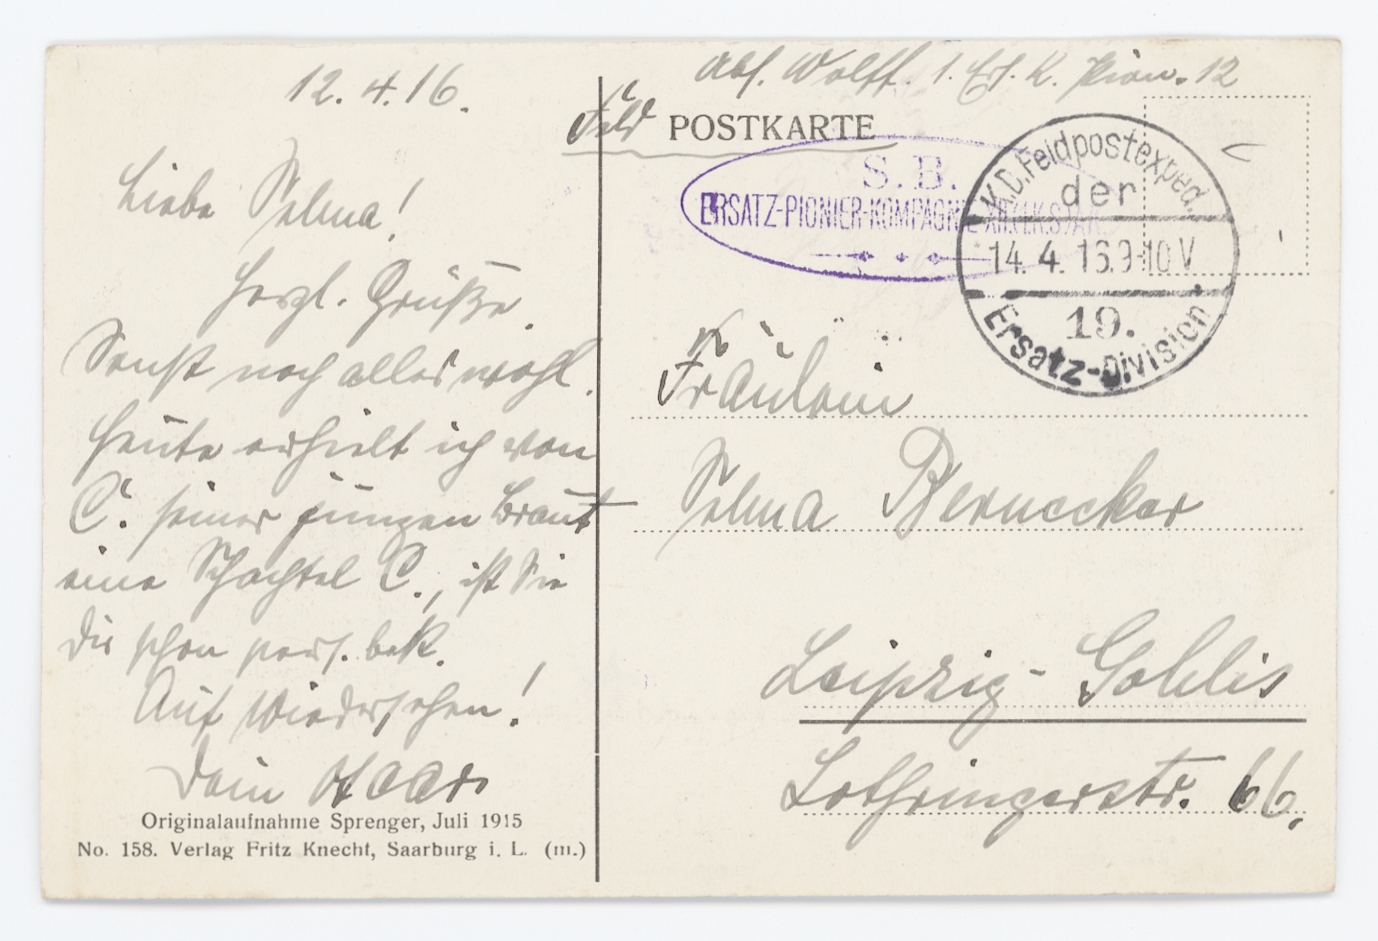 12.4.16.
Liebe Selma!
Herzl. Grüße.
Sonst noch alles wohl.
Heute erhielt ich von
C. seiner jungen Braut
eine Schachtel C., ist Sie
Dir schon pers. bek.
Auf Wiedersehen!
Dein
Originalaufnahme Sprenger, Juli 1915
No. 158. Verlag Fritz Knecht, Saarburg i. L. (m.)
Abs. Wolff. 1. Ers. K. Pion. 12
Feld POSTKARTE
S. B.
ERSATZ-PIONIER-KOMPAGNIE
K.D.Feldpostexped.
der
14.4.16.9-10V
19.
Ersatz-Division
Fräulein
Selma Bernecker
Leipzig-Gohlis
Lothringerstr. 66.